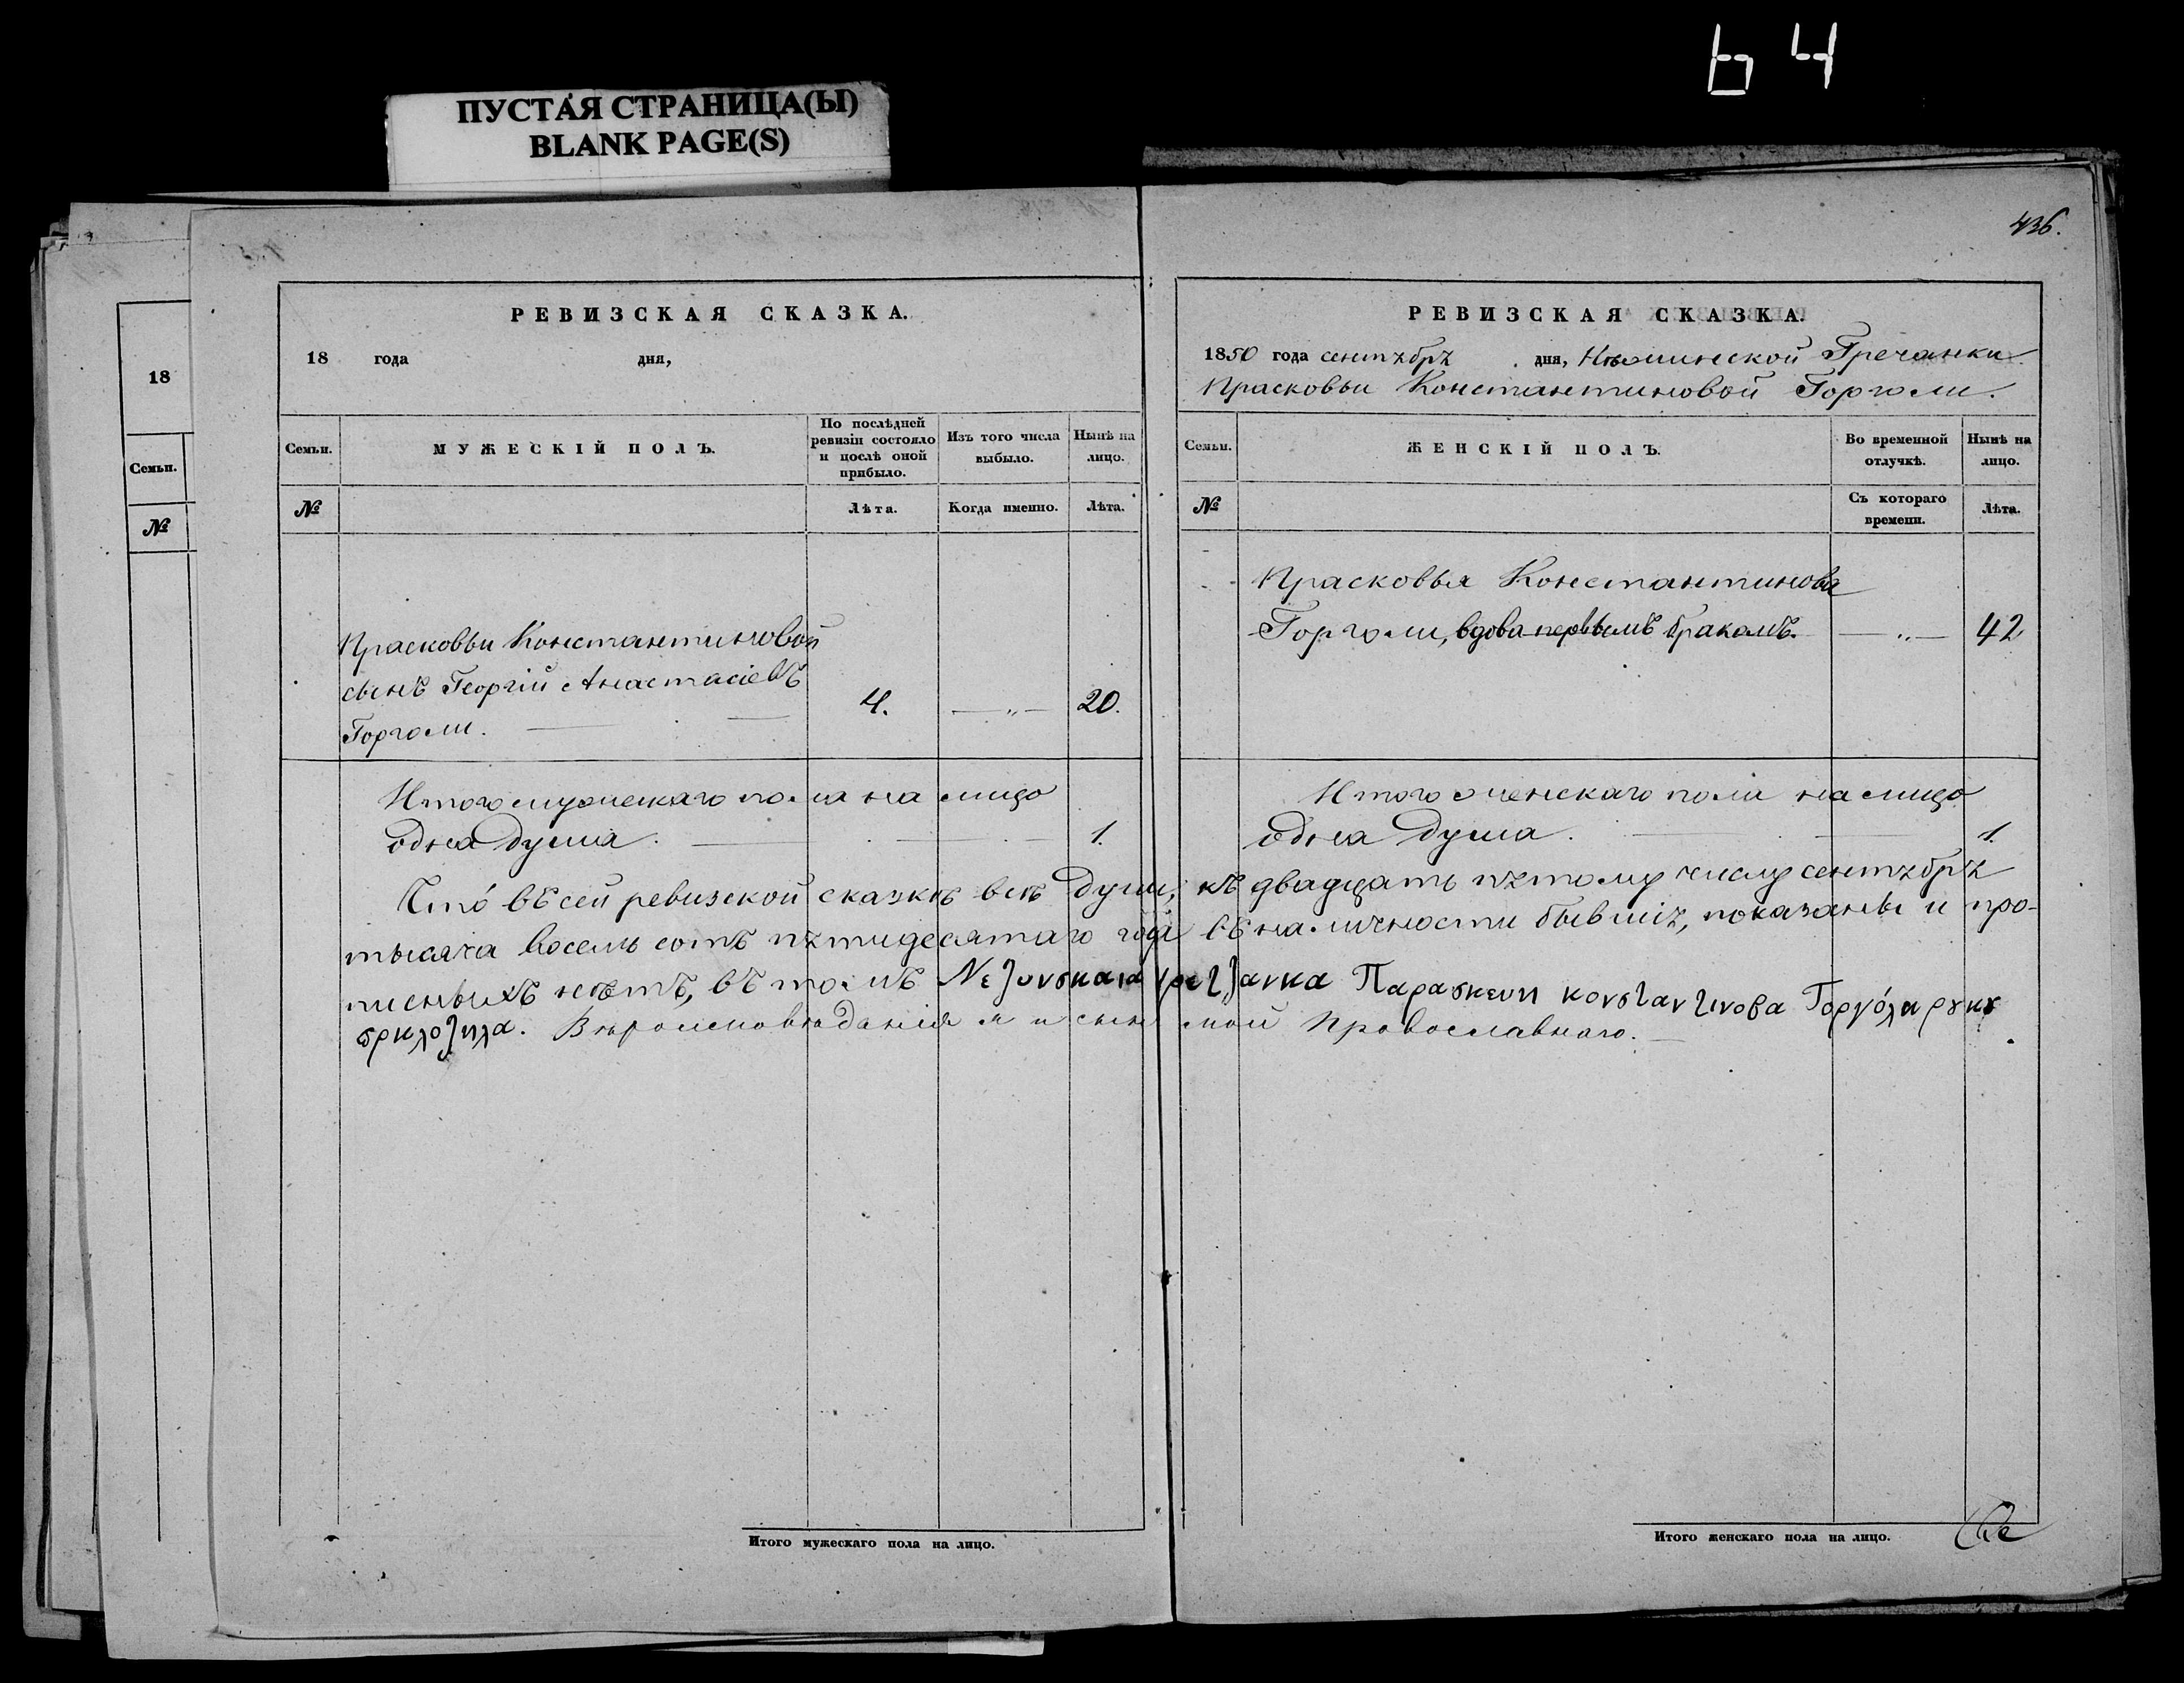 64
ПУСТАЯ СТРАНИЦА(Ы)
BLANK PAGE(S)
436.
18
Семьи.
№
РЕВИЗСКАЯ СКАЗКА.
18 года дня,
Семьи.
МУЖЕСКІЙ ПОЛЪ.
По послѣдней ревизіи состояло и послѣ оной прибыло.
Изъ того числа выбыло.
Нынѣ на лицо.
№
Лѣта.
Когда именно.
Лѣта.
Прасковьи Константиновой
сынъ Георгій Анастасіевъ
Горголи.
4. — „ — 20.
Итого мужескаго пола на лицо
одна душа. 1.
РЕВИЗСКАЯ СКАЗКА.
1850 года сентября дня, Нѣжинской Гречанки
Прасковьи Константиновой Горголи.
Семьи.
ЖЕНСКІЙ ПОЛЪ.
Во временной отлучкѣ.
Нынѣ на лицо.
№
Съ котораго времени.
Лѣта.
Прасковья Константинова
Горголи, вдова первымъ бракомъ. — „ — 42
Итого женскаго пола на лицо
одна душа. 1.
Что въ сей ревизской сказкѣ всѣ души, къ двадцать пятому числу сентября
тысяча восемь сотъ пятидесятаго года въ наличности бывшія, показаны и про-
писныхъ нѣтъ, въ томъ Νεζινσκαια Παρασκευι κονσταντινοβα Γοργόλι ρуку
πριλοζιλα. Вѣроисповѣданія я и сынъ мой Провославнаго.
Итого мужескаго пола на лицо.
Итого женскаго пола на лицо.